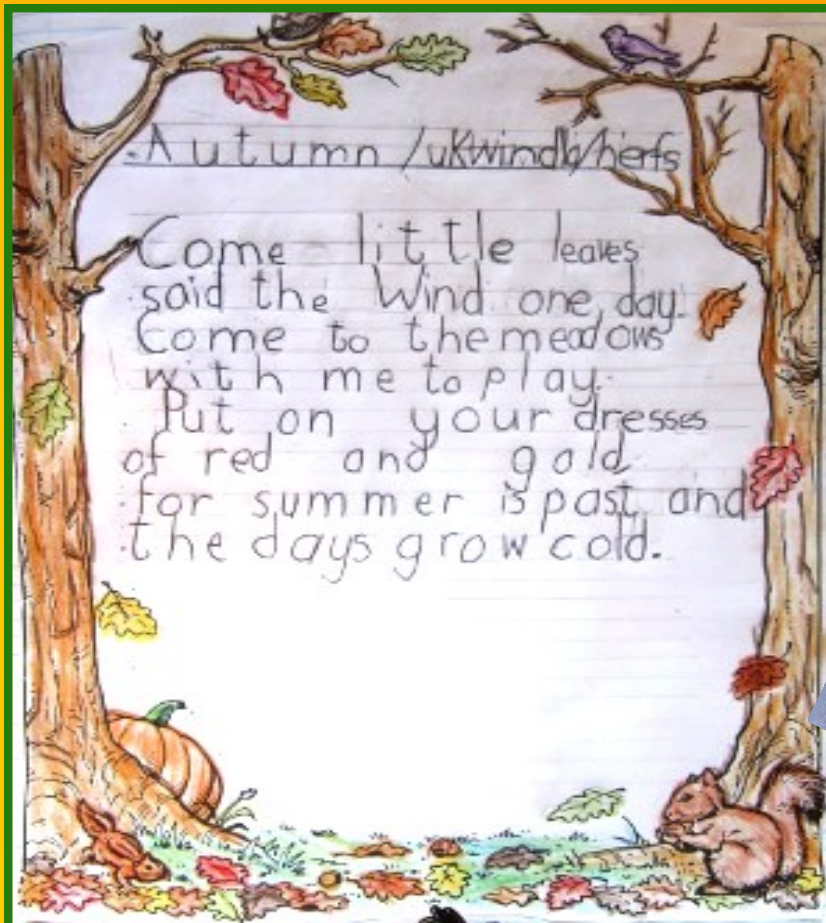 Autumn
Come little leaves
said the Wind one day.
Come to the meadows
with me to play.
Put on your dresses
of red and gold
for summer is past and
the days grow cold.